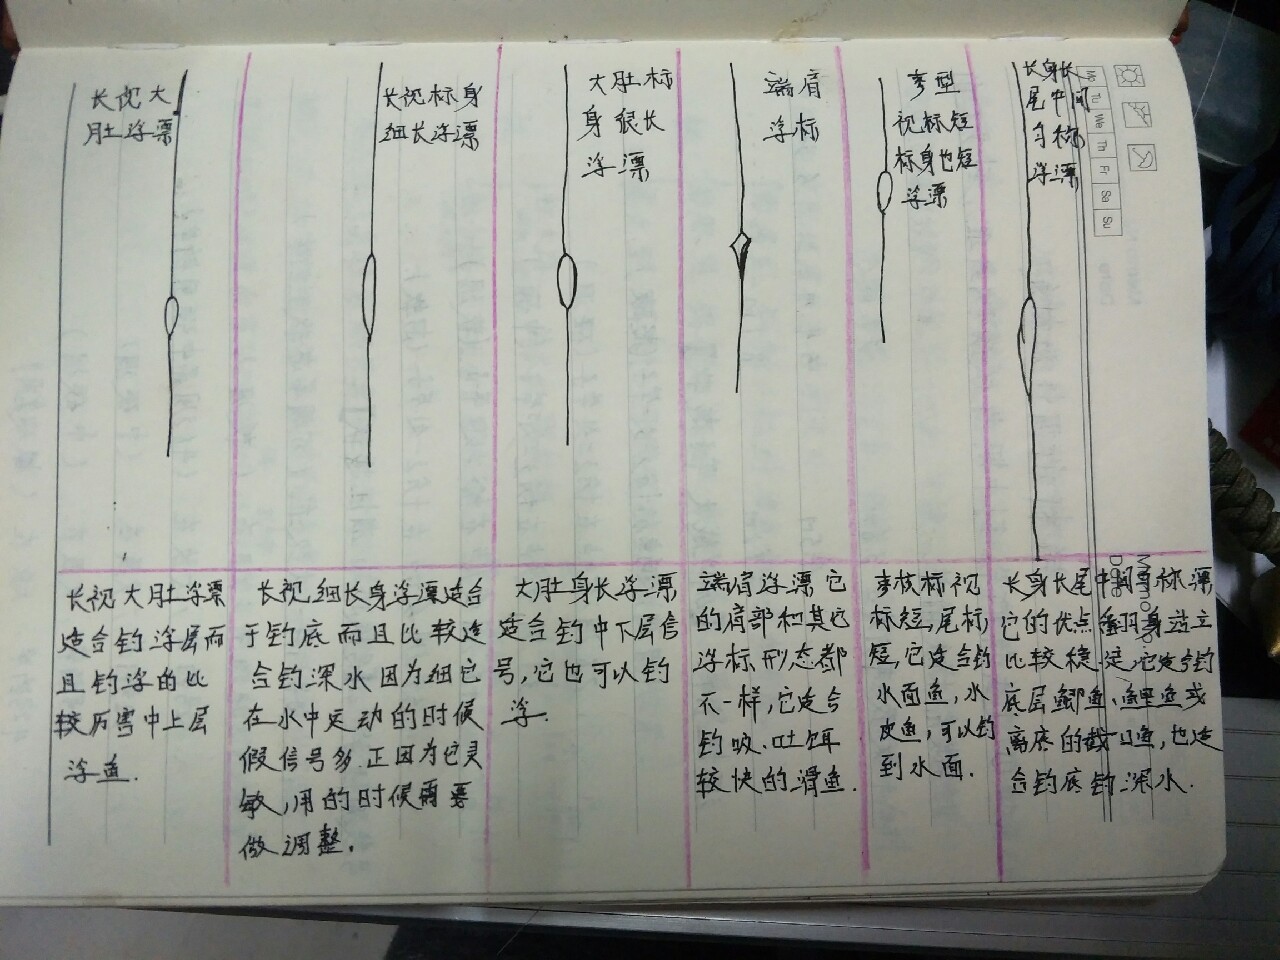 长视大
肚浮漂
长视标身
细长浮漂
大肚标
身很长
浮漂
端肩
浮标
枣型
视标短
标身也短
浮漂
长身长
尾中间
匀称
浮漂
Mo
Tu
We
Th
Fr
Sa
Su
Memo No.
Date
长视大肚浮漂
适合钓浮层而
且钓浮的比
较厉害中上层
浮鱼.
长视细长身浮漂适合
于钓底而且比较适
合钓深水因为细它
在水中运动的时候
假信号多.正因为它灵
敏,用的时候需要
做调整.
大肚身长浮漂
适合钓中下层信
号,它也可以钓
浮.
端肩浮漂它
的肩部和其它
浮标形态都
不一样,它适合
钓吸.吐饵
较快的滑鱼.
枣核标视
标短,尾标
短,它适合钓
水面鱼,水
皮鱼,可以钓
到水面.
长身长尾中间匀称漂
它的优点翻身竖立
比较稳定,它适合钓
底层鲫鱼、鲤鱼或
离底的截口鱼,也适
合钓底钓深水.